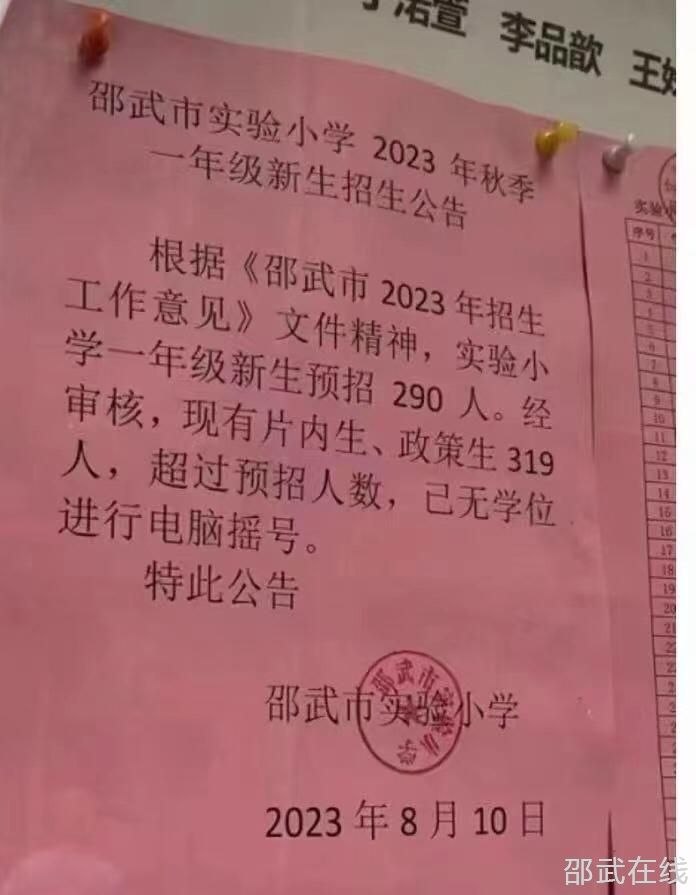 渃萱 李品歆 王
邵武市实验小学 2023 年秋季
一年级新生招生公告
根据《邵武市 2023 年招生
工作意见》文件精神，实验小
学一年级新生预招 290 人。经
审核，现有片内生、政策生 319
人，超过预招人数，已无学位
进行电脑摇号。
特此公告
邵武市实验小学
邵武市实验小学
2023 年 8 月 10 日
实验小
序号
1
2
3
4
5
6
7
8
9
10
11
12
13
14
15
16
17
18
19
20
21
邵武在线